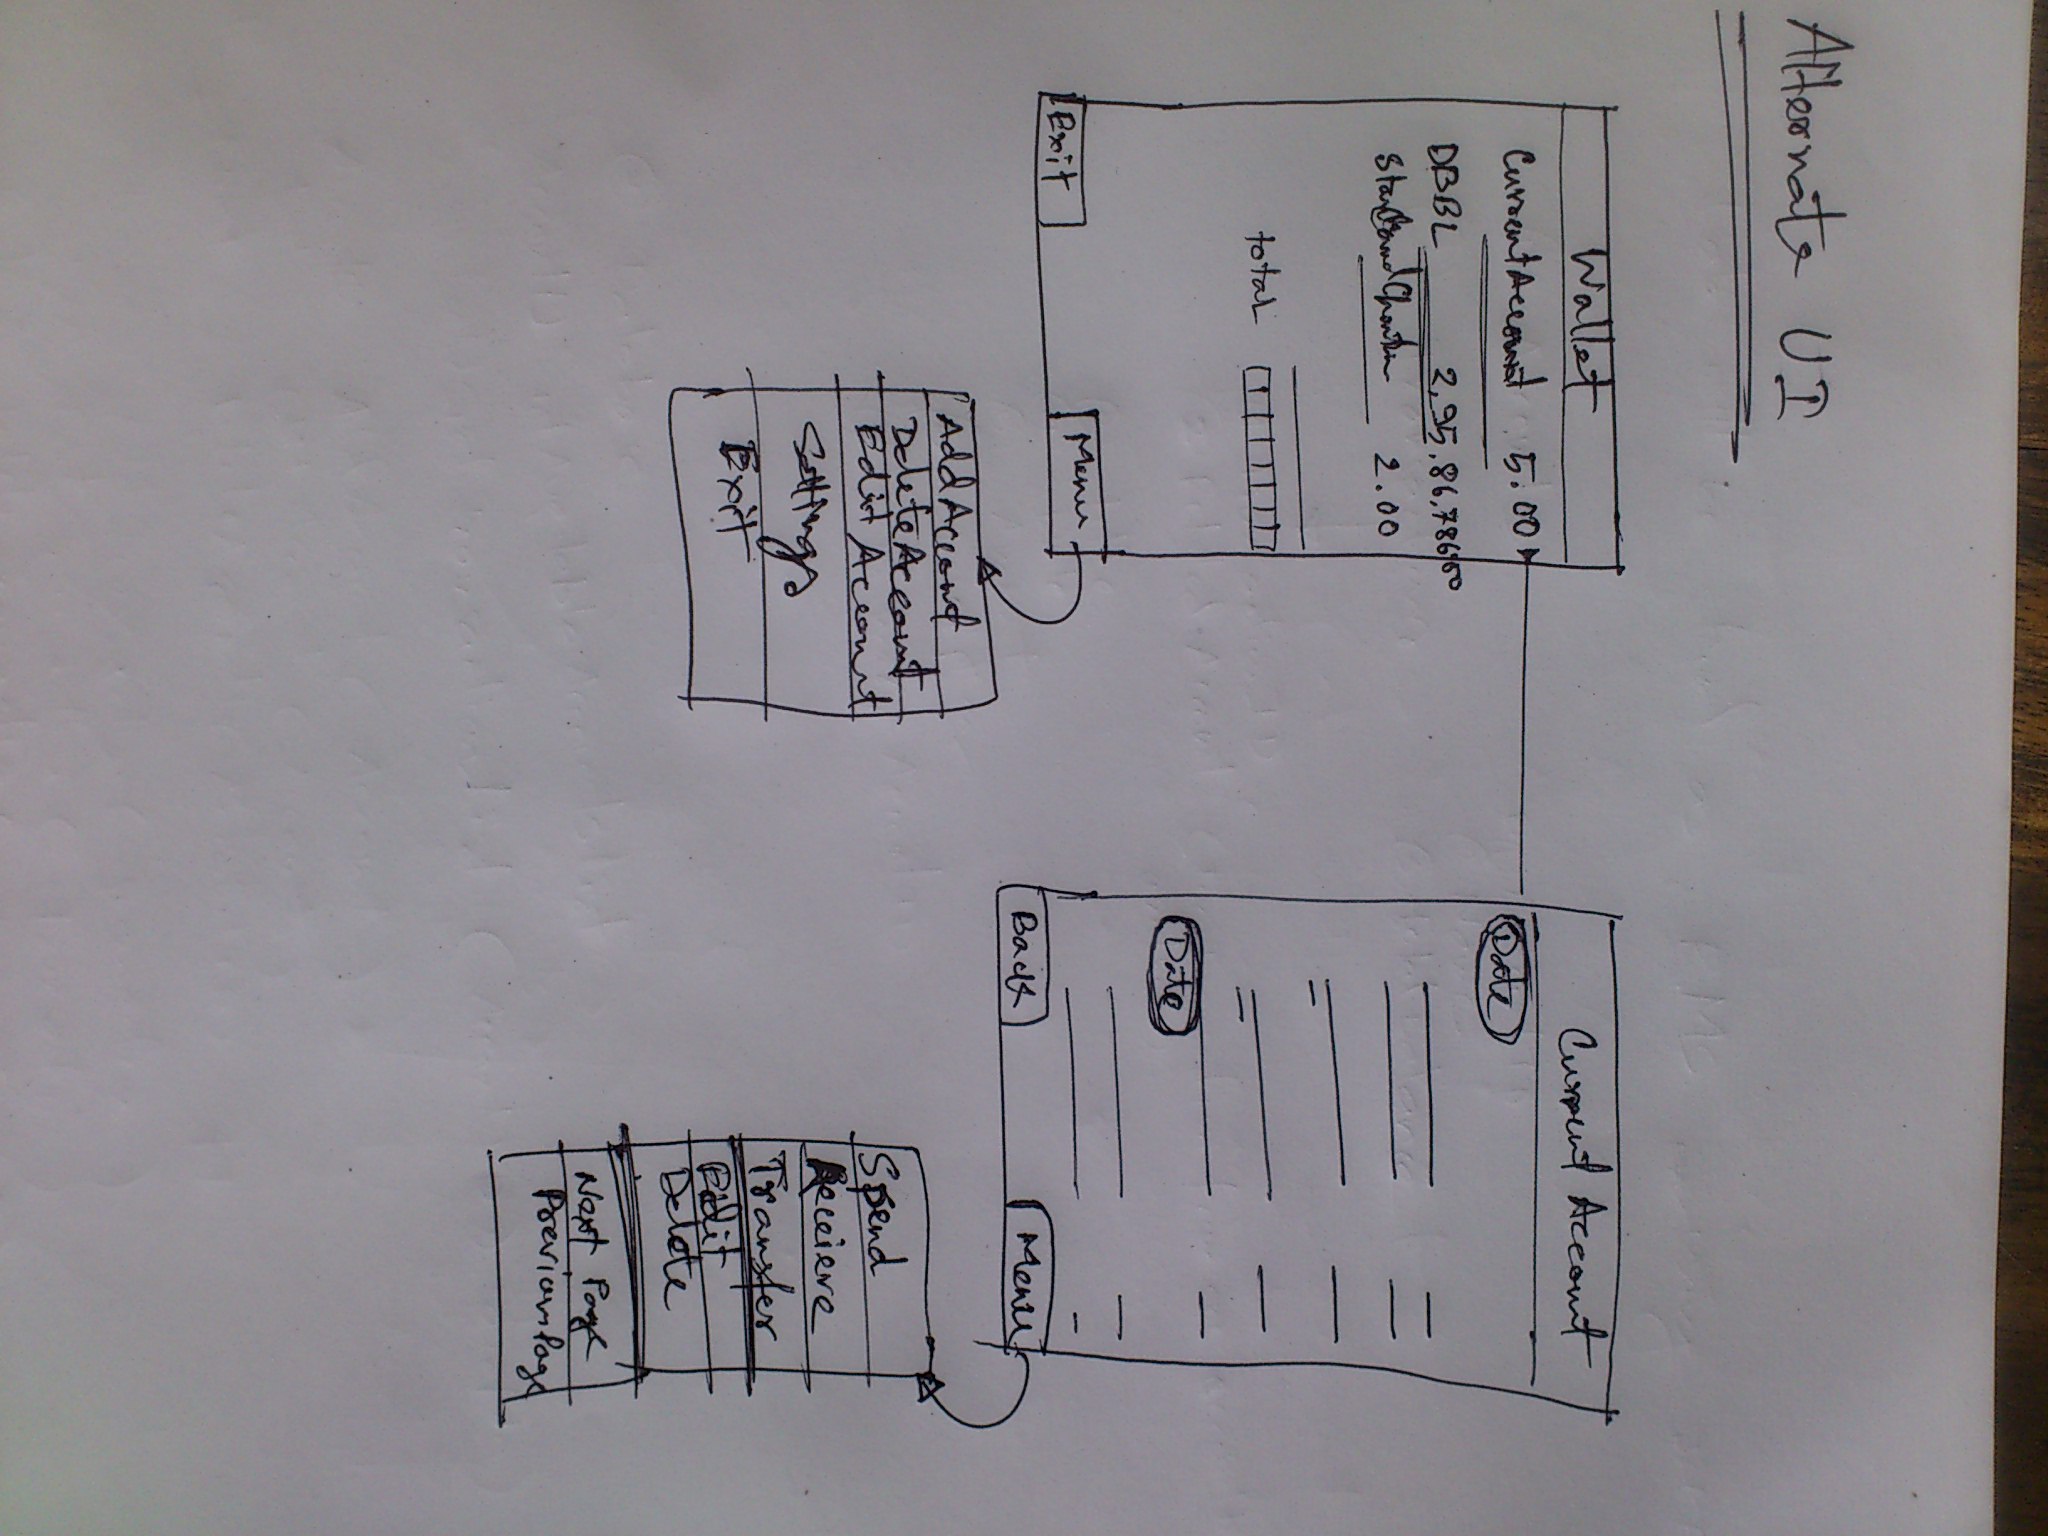 Alternate UI
Wallet
Current Account 5.00
DBBL 2,95,86,786.00
2.00
total
Exit
Menu
Add Account
Delete Account
Edit Account
Settings
Exit
Current Account
Date
Date
Back
Menu
Spend
Receieve
Transfer
Edit
Delete
Next Page
Previous Page